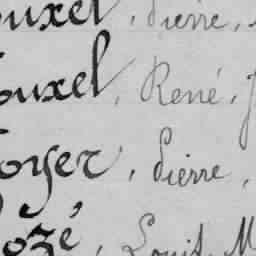 ouxel, Pierre,
ouxel, René, J
oyer, Pierre,
ozé, Louis, M